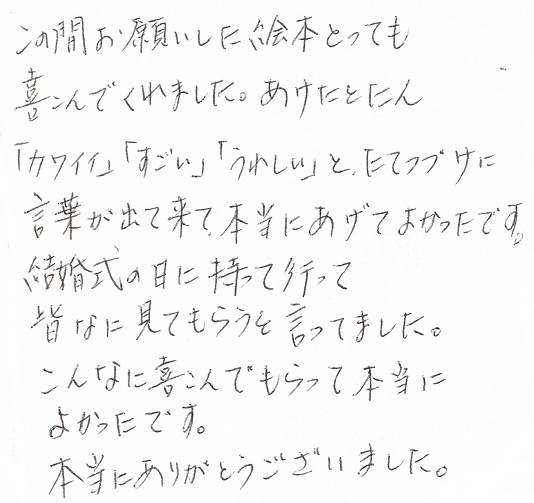 この間お願いした絵本とっても
喜こんでくれました。あけたとたん
「カワイイ」「すごい」「うれしい」と、たてつづけに
言葉が出て来て、本当にあげてよかったです。
結婚式の日に持って行って
皆なに見てもらうそ言ってました。
こんなに喜こんでもらって本当に
よかったです。
本当にありがとうございました。